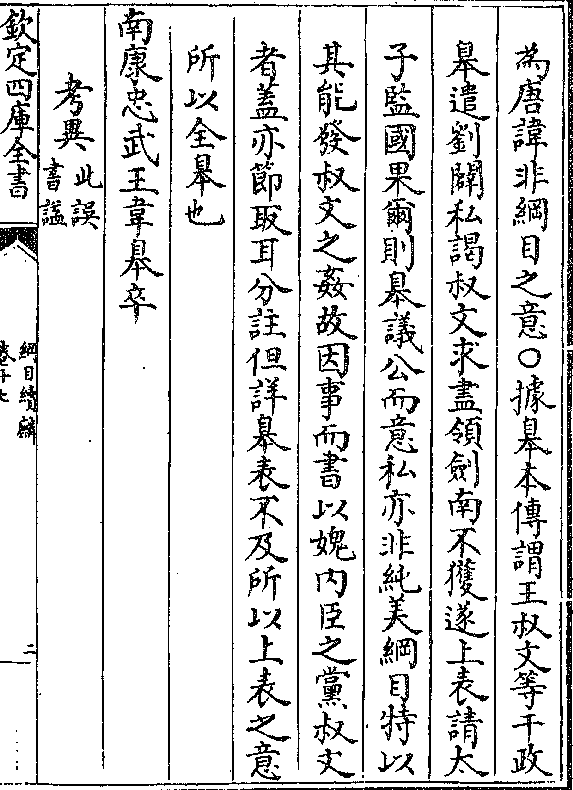 為唐諱非綱目之意○據臯本傳謂王叔文等干政
臯遣劉闢私謁叔文求盡領劍南不獲遂上表請太
子監國果爾則臯議公而意私亦非純美綱目特以
其能發叔文之姦故因事而書以媿内臣之黨叔文
者蓋亦節取耳分註但詳臯表不及所以上表之意
所以全臯也
南康忠武王韋臯卒
考異此誤
書諡
欽定四庫全書
綱目續麟
二